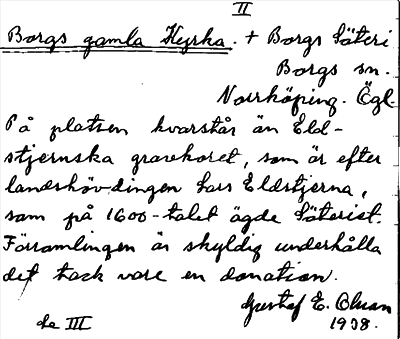 II
Borgs gamla Kyrka. + Borgs Säteri
Borgs sn.
Norrköping. Ögl.
På platsen kvarstår än Eld-
stjernska gravkoret, som är efter
landshövdingen Lars Eldstjerna,
som på 1600-talet ägde Säteriet.
Församlingen är skyldig underhålla
det tack vare en donation.
Gustaf E. Olsson
1938.
de III